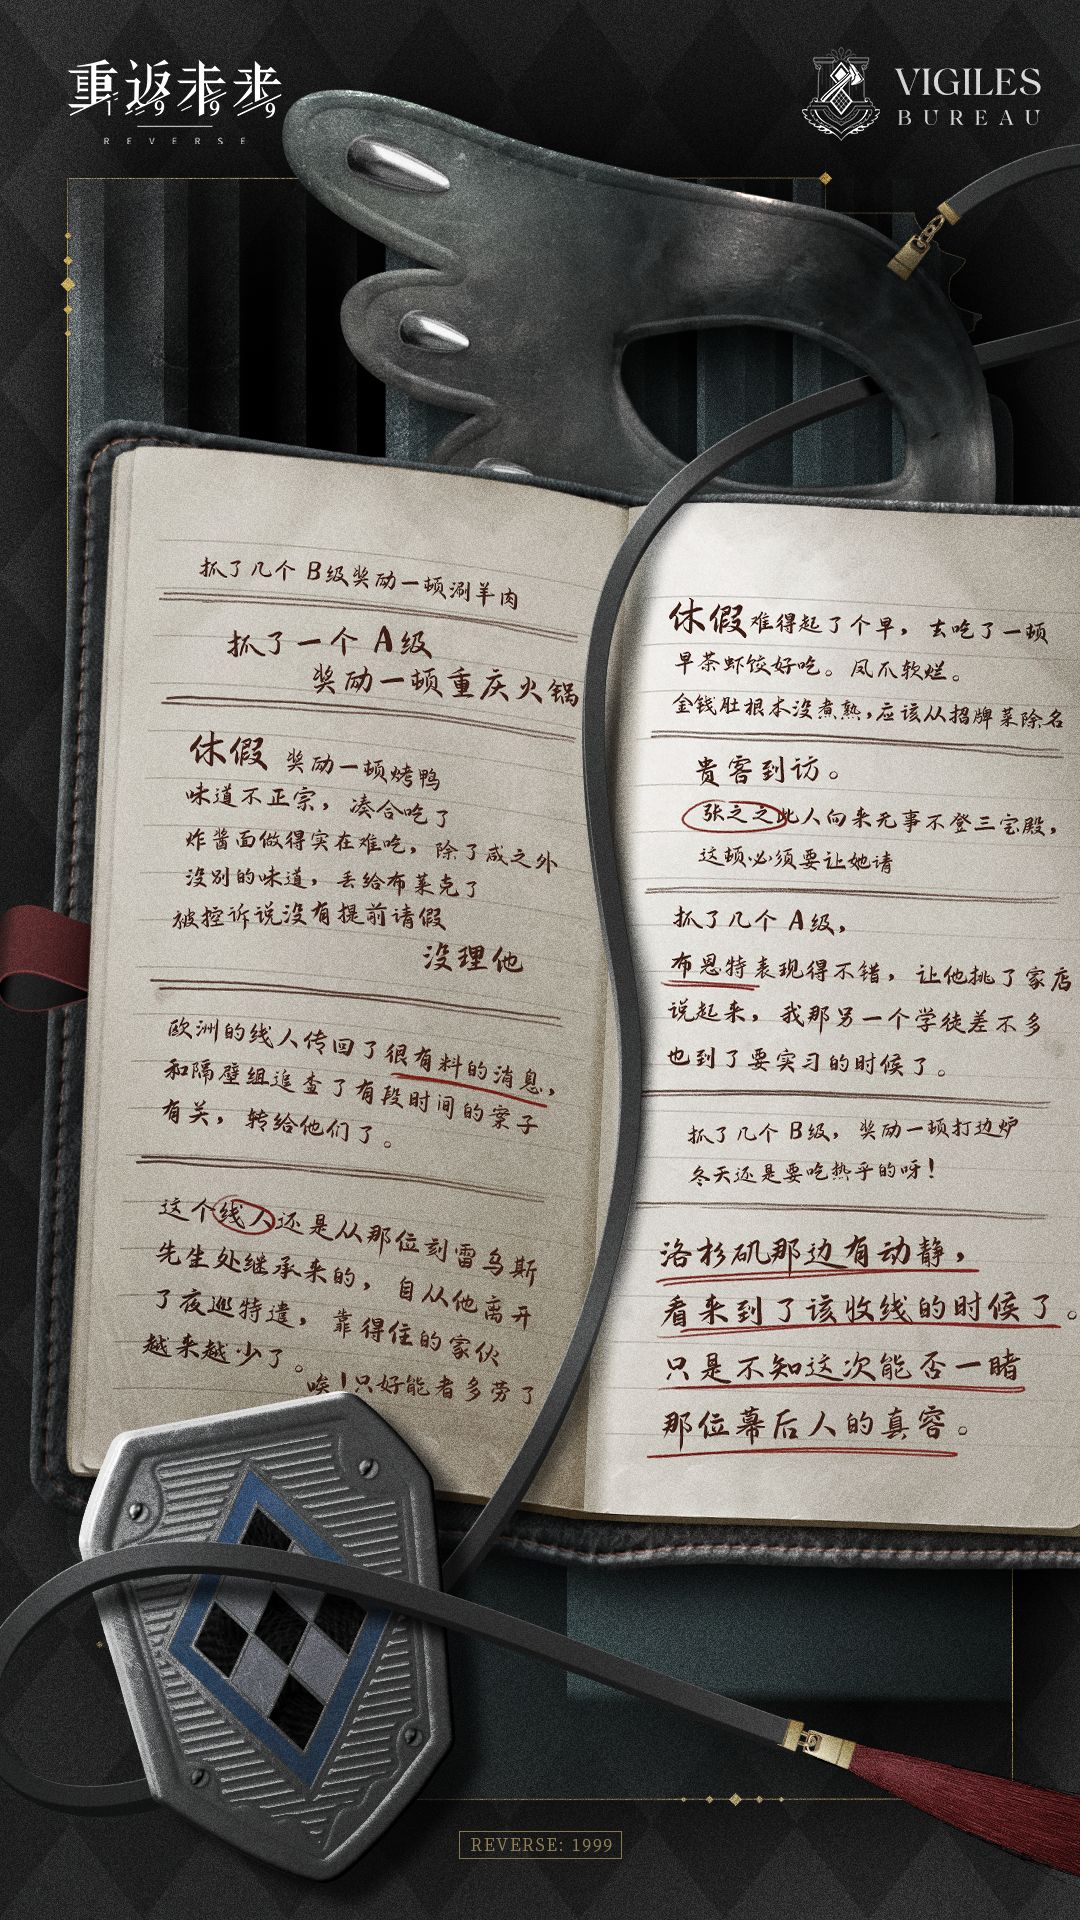 重返未来
1999
REVERSE
VIGILES
BUREAU
抓了几个 B级奖励一顿涮羊肉
抓了一个 A级
奖励一顿重庆火锅
休假 奖励一顿烤鸭
味道不正宗，凑合吃了
炸酱面做得实在难吃，除了咸之外
没别的味道，丢给布莱克了
被控诉说没有提前请假
没理他
欧洲的线人传回了很有料的消息，
和隔壁组追查了有段时间的案子
有关，转给他们了。
这个线人还是从那位刻雷乌斯
先生处继承来的，自从他离开
了夜巡特遣，靠得住的家伙
越来越少了。
唉！只好能者多劳了
休假难得起了个早，去吃了一顿
早茶虾饺好吃。凤爪软烂。
金钱肚根本没煮熟，应该从招牌菜除名
贵客到访。
张之之此人向来无事不登三宝殿，
这顿必须要让她请
抓了几个 A级，
布恩特表现得不错，让他挑了家店
说起来，我那另一个学徒差不多
也到了要实习的时候了。
抓了几个 B级，奖励一顿打边炉
冬天还是要吃热乎的呀！
洛杉矶那边有动静，
看来到了该收线的时候了。
只是不知这次能否一睹
那位幕后人的真容。
REVERSE: 1999